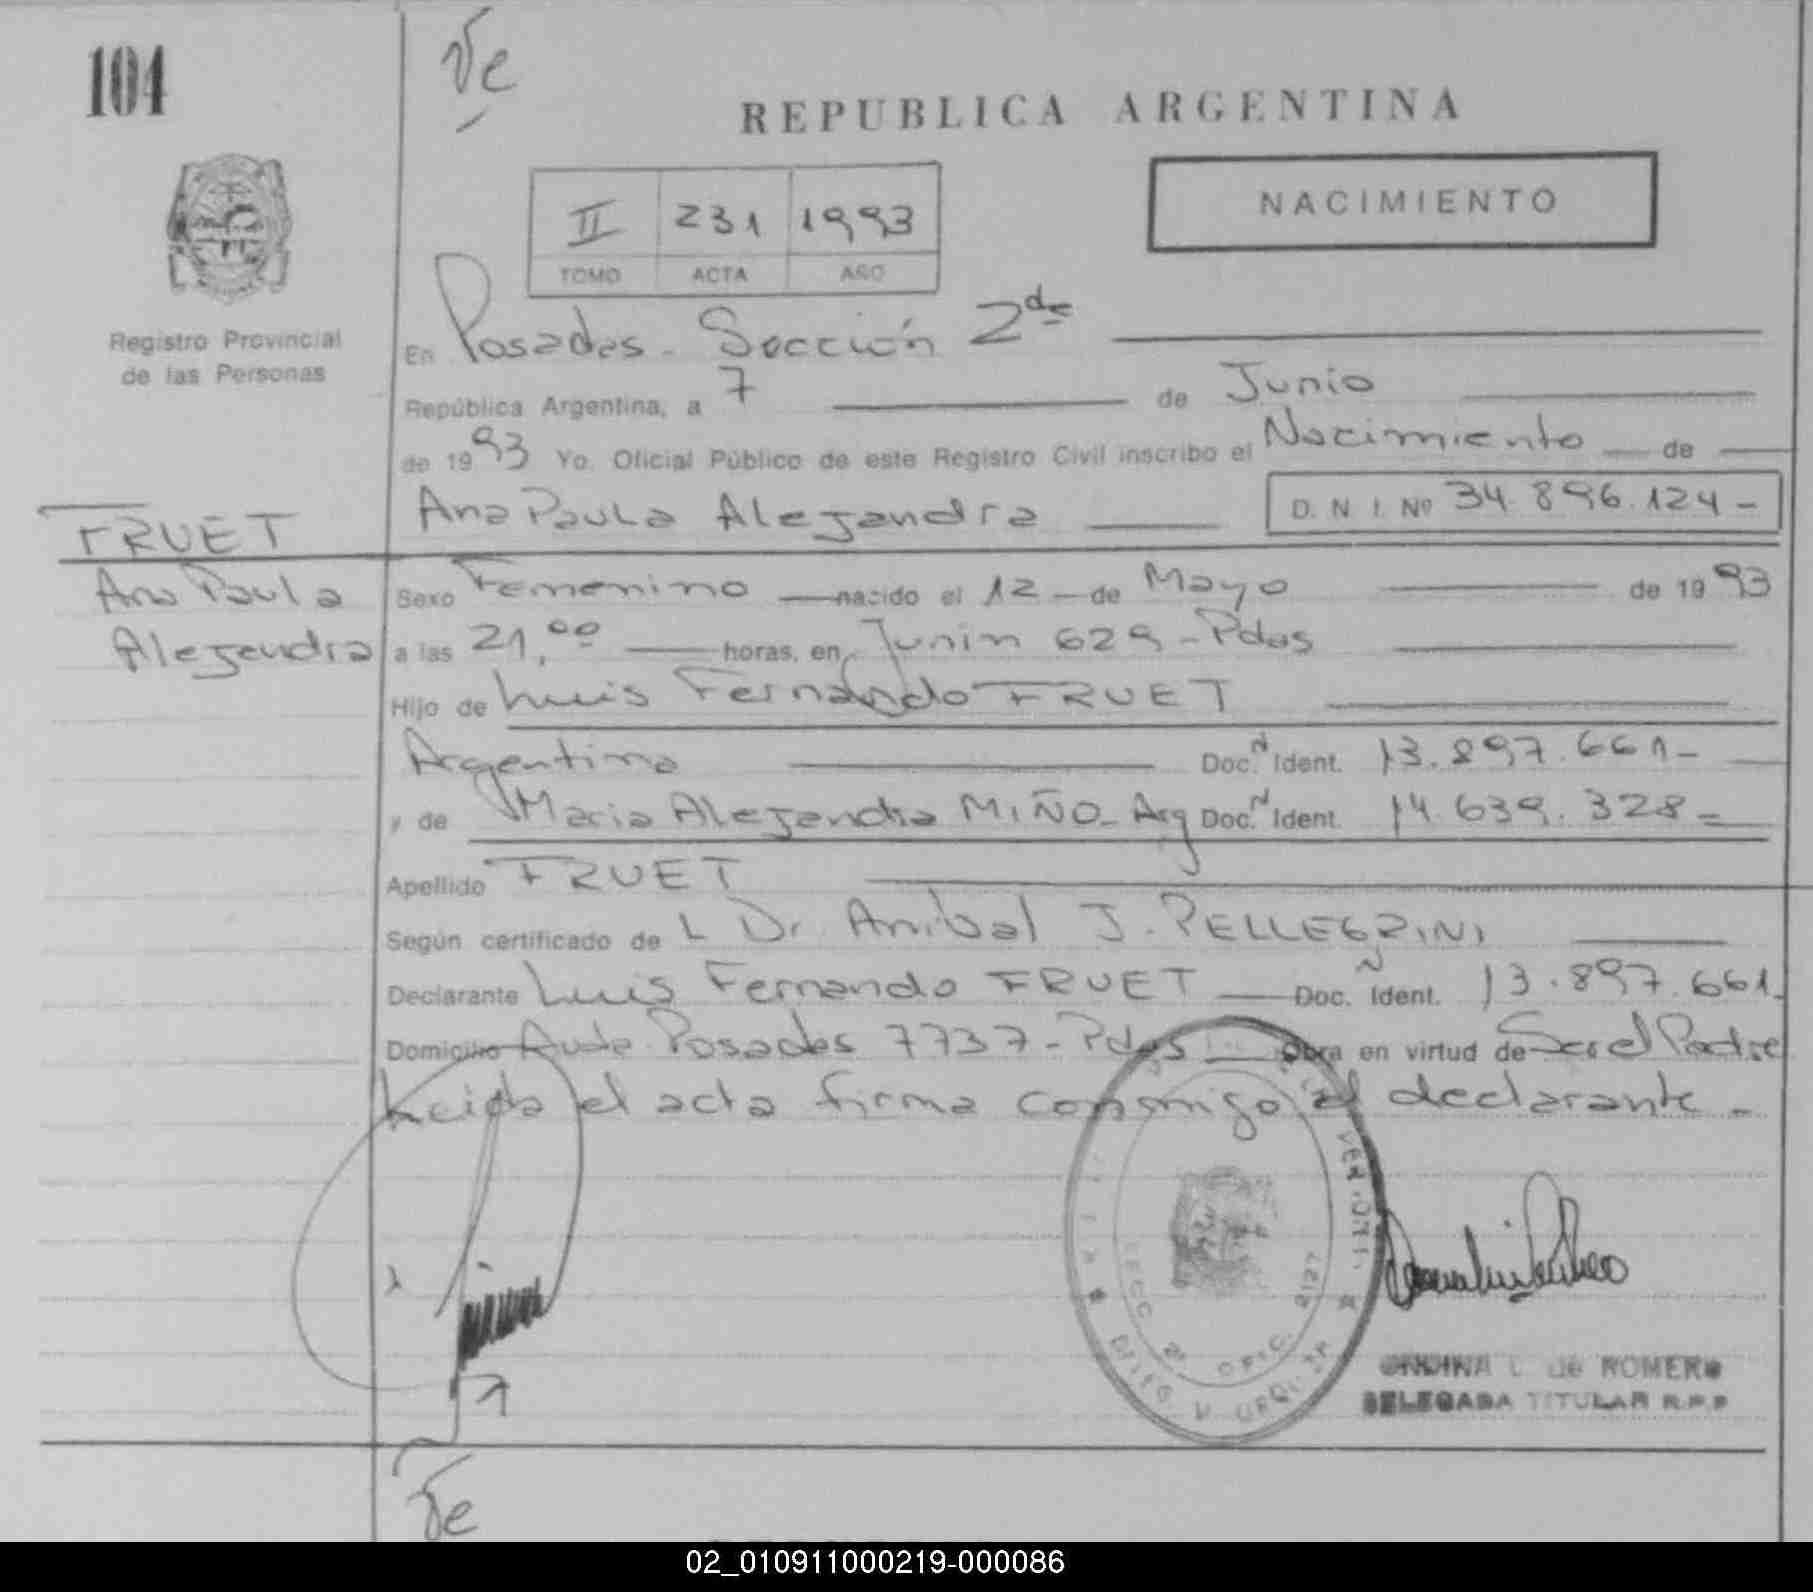 104
Ve
REPUBLICA ARGENTINA
NACIMIENTO
II 231 1993
TOMO ACTA AÑO
Registro Provincial
de las Personas
En Posadas - Sección 2da
República Argentina, a 7 de Junio
de 1993 Yo, Oficial Público de este Registro Civil inscribo el Nacimiento de
Ana Paula Alejandra D. N. I. Nº 34.896.124-
FRUET
Ana Paula
Alejandra
Sexo Femenino nacido el 12 de Mayo de 1993
a las 21,00 horas, en Junin 629 - Pdas
Hijo de Luis Fernando FRUET
Argentino Doc. N Ident. 13.897.661-
y de Maria Alejandra MIÑO - Arg Doc. N Ident. 14.639.328-
Apellido FRUET
Según certificado de L Dr. Anibal J. PELLEGRINI
Declarante Luis Fernando FRUET Doc. N Ident. 13.897.661-
Domicilio Avda Posadas 7737 - Pdas Obra en virtud de Ser el Padre
Leida el acta firma conmigo el declarante -
SECC 2ª OFIC. 2127
ONDINA L. de ROMERO
DELEGADA TITULAR R.P.P
Ve
02_010911000219-000086